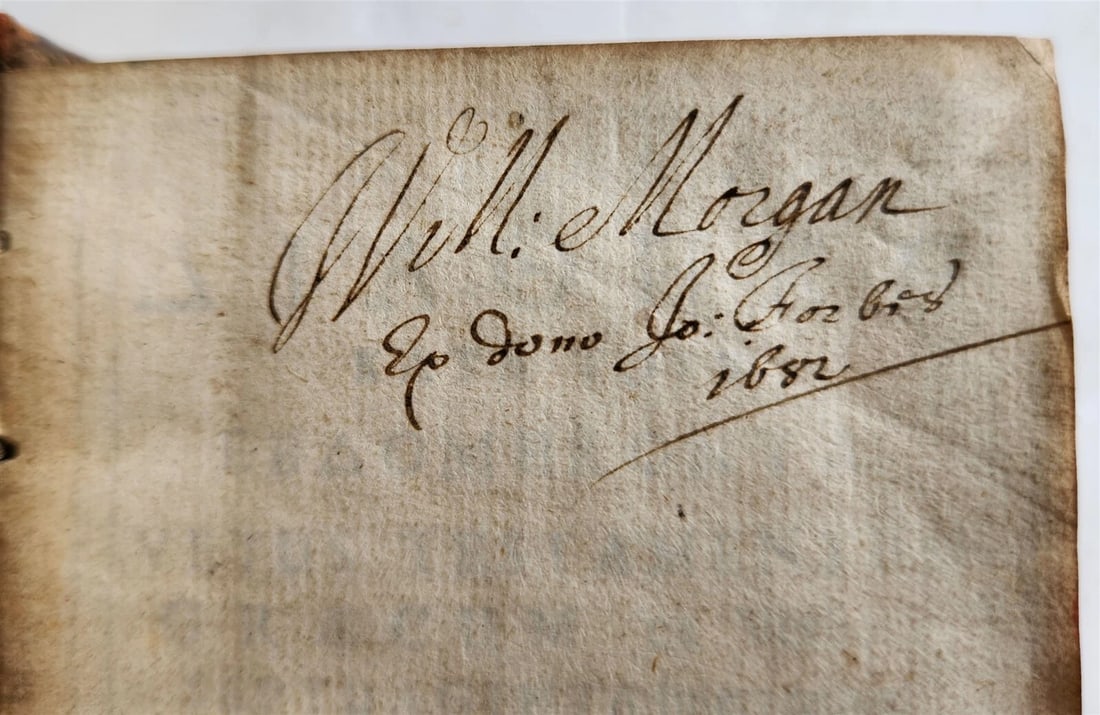 Will: Morgan
Ex dono Jo: Forbes
1682